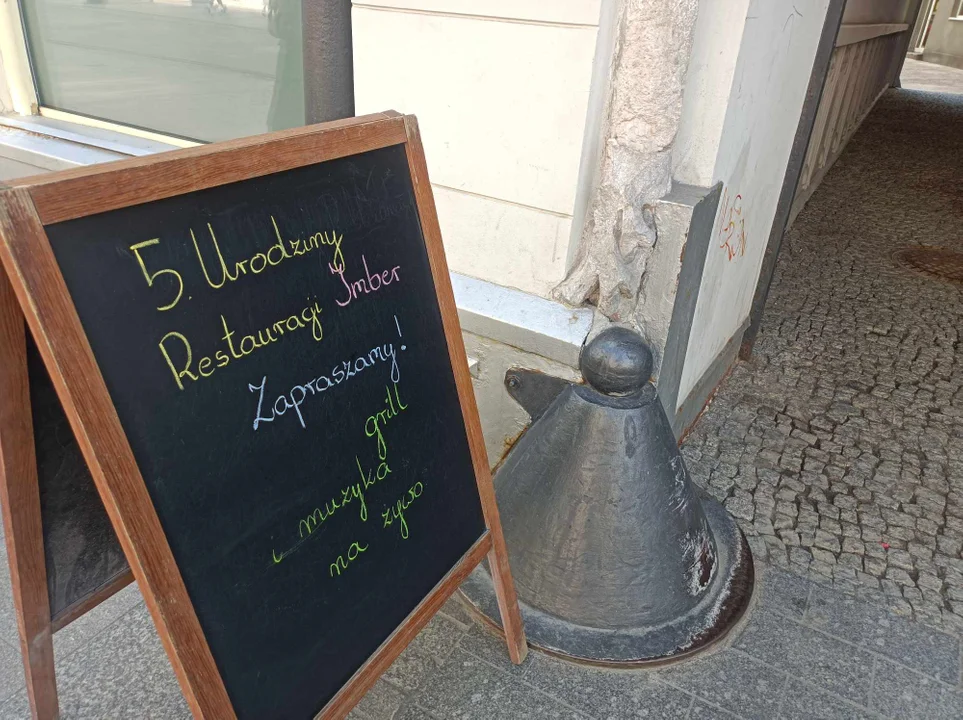 5. Urodziny
Restauracji Imber
Zapraszamy!
grill
i muzyka
na żywo